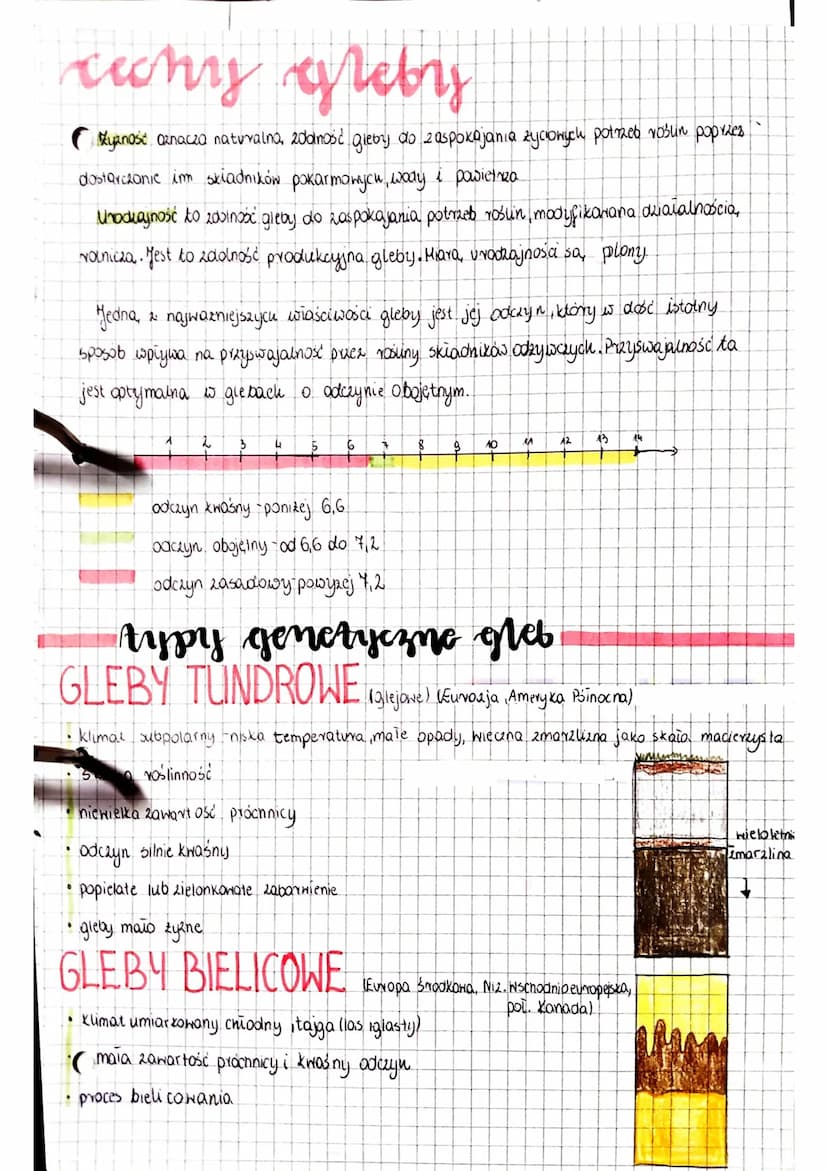 cechy gleby
Żyzność oznacza naturalną zdolność gleby do zaspokajania życiowych potrzeb roślin poprzez
dostarczanie im składników pokarmowych, wody i powietrza
Urodzajność to zdolność gleby do zaspokajania potrzeb roślin, modyfikowana działalnością
rolniczą. Jest to zdolność produkcyjna gleby. Miarą urodzajności są plony.
Jedną z najważniejszych właściwości gleby jest jej odczyn, który w dość istotny
sposób wpływa na przyswajalność przez rośliny składników odżywczych. Przyswajalność ta
jest optymalna w glebach o odczynie obojętnym.
1 2 3 4 5 6 7 8 9 10 11 12 13 14
odczyn kwaśny - poniżej 6,6
odczyn obojętny - od 6,6 do 7,2
odczyn zasadowy - powyżej 7,2
typy genetyczne gleb
GLEBY TUNDROWE (glejowe) (Eurazja, Ameryka Północna)
• klimat subpolarny - niska temperatura, małe opady, wieczna zmarzlina jako skała macierzysta
• roślinność
• niewielka zawartość próchnicy
• odczyn silnie kwaśny
• popielate lub zielonkawate zabarwienie
• gleby mało żyzne
wieloletni
zmarzlina
GLEBY BIELICOWE (Europa Środkowa, Niz. Wschodnioeuropejska,
poł. Kanada)
• klimat umiarkowany chłodny, tajga (las iglasty)
• mała zawartość próchnicy i kwaśny odczyn
• proces bielicowania